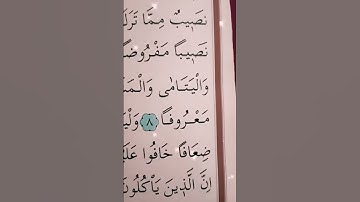 نَصٖيبٌ مِمَّا تَرَكَ
نَصٖيباً مَفْرُوضاً
وَالْيَتَامٰى
مَعْرُوفاً ﴿٨﴾
ضِعَافاً خَافُوا
اِنَّ الَّذٖينَ يَأْكُلُونَ